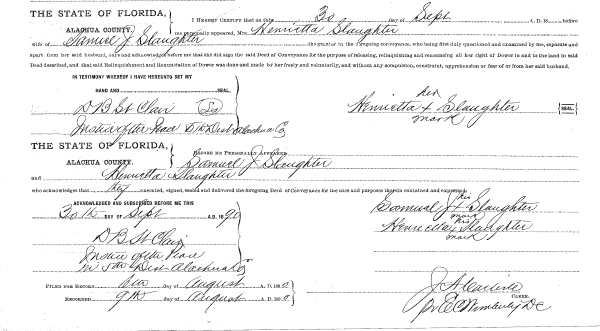 THE STATE OF FLORIDA,
ALACHUA COUNTY.
I HEREBY CERTIFY that on this 30 day of Sept A. D. 18 before
me personally appeared, Mrs. Henrietta Slaughter
wife of Samuel J Slaughter the grantor in the foregoing conveyance, who being first duly questioned and examined by me, separate and
apart from her said husband, says and acknowledges before me that she did sign the said Deed of Conveyance for the purpose of releasing, relinquishing and renouncing all her right of Dower in and to the land in said
Deed described, and that said Relinquishment and Renunciation of Dower was done and made by her freely and voluntarily, and without any compulsion, constraint, apprehension or fear of or from her said husband.
IN TESTIMONY WHEREOF I HAVE HEREUNTO SET MY
HAND AND SEAL.
D B St Clair
Justice of the Peace 5th Dist Alachua Co
her
Henrietta x Slaughter SEAL
mark
THE STATE OF FLORIDA,
ALACHUA COUNTY.
BEFORE ME PERSONALLY APPEARED
Samuel J. Slaughter
and Henrietta Slaughter
who acknowledges that they executed, signed, sealed and delivered the foregoing Deed of Conveyance for the uses and purposes therein contained and expressed.
ACKNOWLEDGED AND SUBSCRIBED BEFORE ME THIS
30th DAY OF Sept A. D. 1890
D B St Clair
Justice of the Peace
5th Dist Alachua Co
his
Samuel J x Slaughter
mark
Henrietta x Slaughter
mark
FILED FOR RECORD day of August A. D. 18
RECORDED 9th day of August A. D. 18
CLERK.
DC